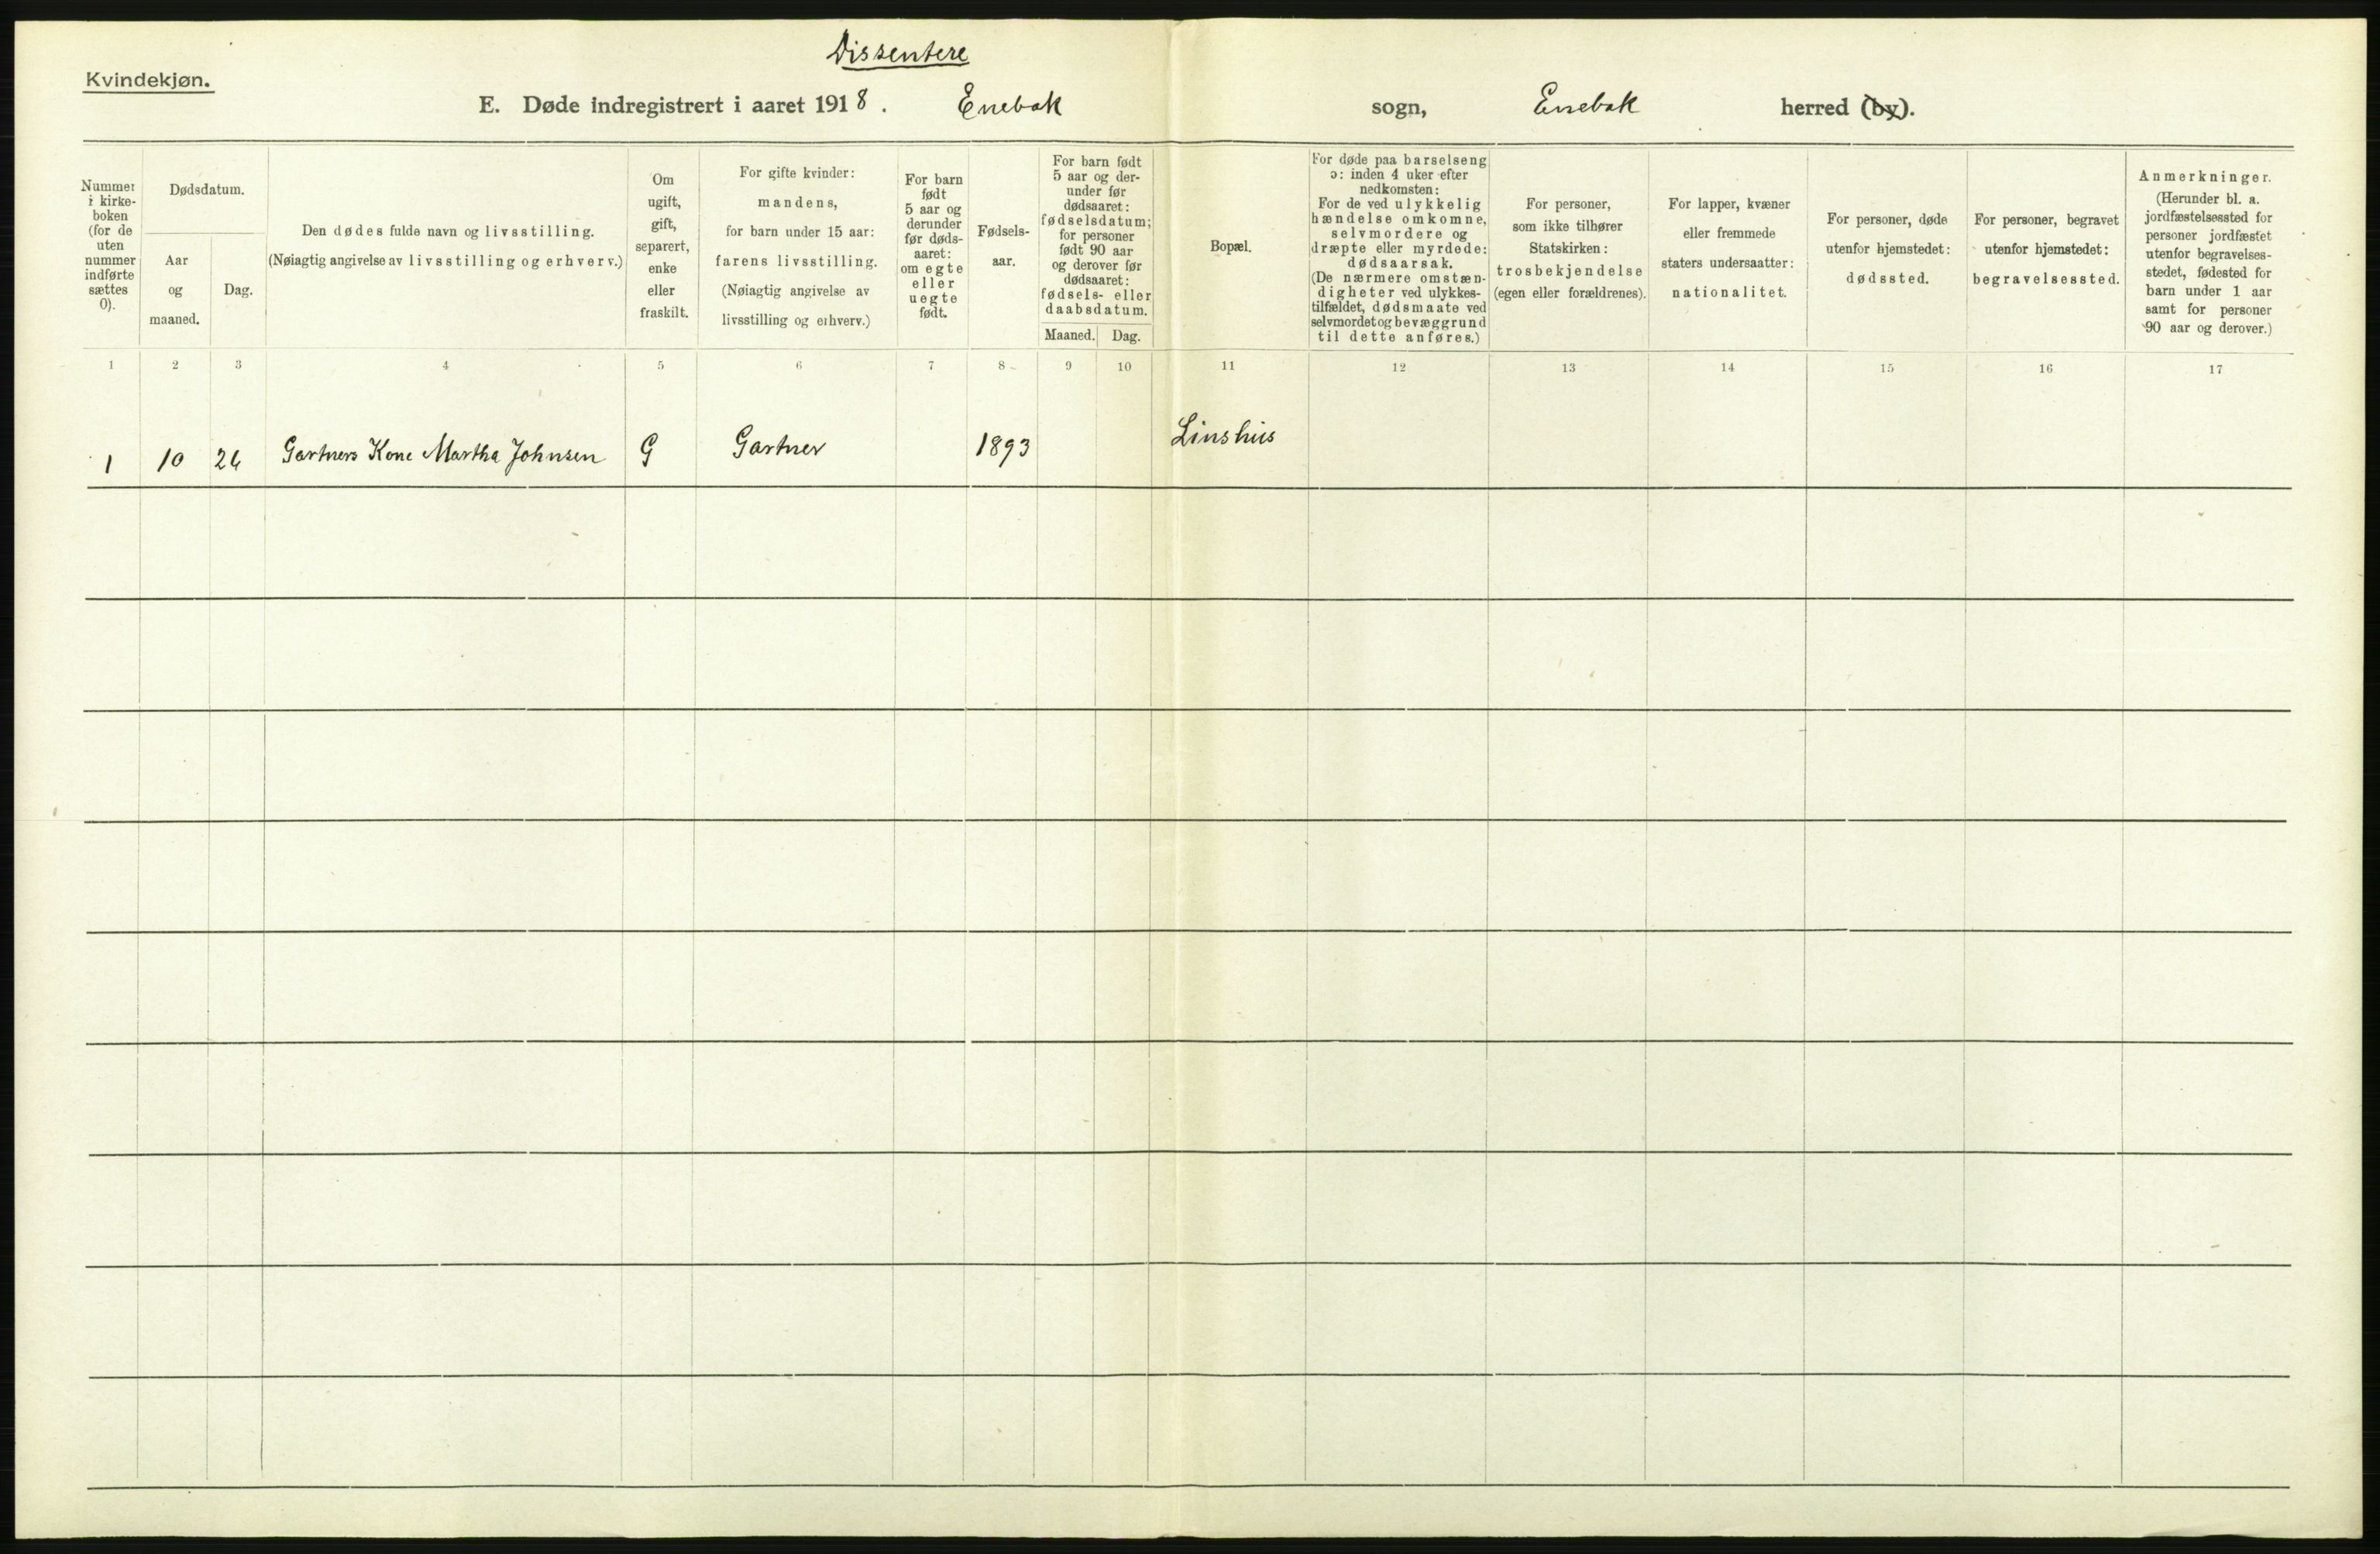 Dissentere
Kvindekjøn.
E. Døde indregistrert i aaret 1918. Enebak sogn, Enebak herred (by).
Nummer
i kirke-
boken
(for de
uten
nummer
indførte
sættes
0).
Dødsdatum.
Aar
og
maaned.
Dag.
Den dødes fulde navn og livsstilling.
(Nøiagtig angivelse av livsstilling og erhverv.)
Om
ugift,
gift,
separert,
enke
eller
fraskilt.
For gifte kvinder:
mandens,
for barn under 15 aar:
farens livsstilling.
(Nøiagtig angivelse av
livsstilling og erhverv.)
For barn
født
5 aar og
derunder
før døds-
aaret:
om egte
eller
uegte
født.
Fødsels-
aar.
For barn født
5 aar og der-
under før
dødsaaret:
fødselsdatum;
for personer
født 90 aar
og derover før
dødsaaret:
fødsels- eller
daabsdatum.
Maaned. Dag.
Bopæl.
For døde paa barselseng
ɔ: inden 4 uker efter
nedkomsten:
For de ved ulykkelig
hændelse omkomne,
selvmordere og
dræpte eller myrdede:
dødsaarsak.
(De nærmere omstæn-
digheter ved ulykkes-
tilfældet, dødsmaate ved
selvmordet og bevæggrund
til dette anføres.)
For personer,
som ikke tilhører
Statskirken:
trosbekjendelse
(egen eller forældrenes).
For lapper, kvæner
eller fremmede
staters undersaatter:
nationalitet.
For personer, døde
utenfor hjemstedet:
dødssted.
For personer, begravet
utenfor hjemstedet:
begravelsessted.
Anmerkninger.
(Herunder bl. a.
jordfæstelsessted for
personer jordfæstet
utenfor begravelses-
stedet, fødested for
barn under 1 aar
samt for personer
90 aar og derover.)
1 2 3 4 5 6 7 8 9 10 11 12 13 14 15 16 17
1 10 26 Gartners Kone Martha Johnsen G Gartner 1893 Linshus